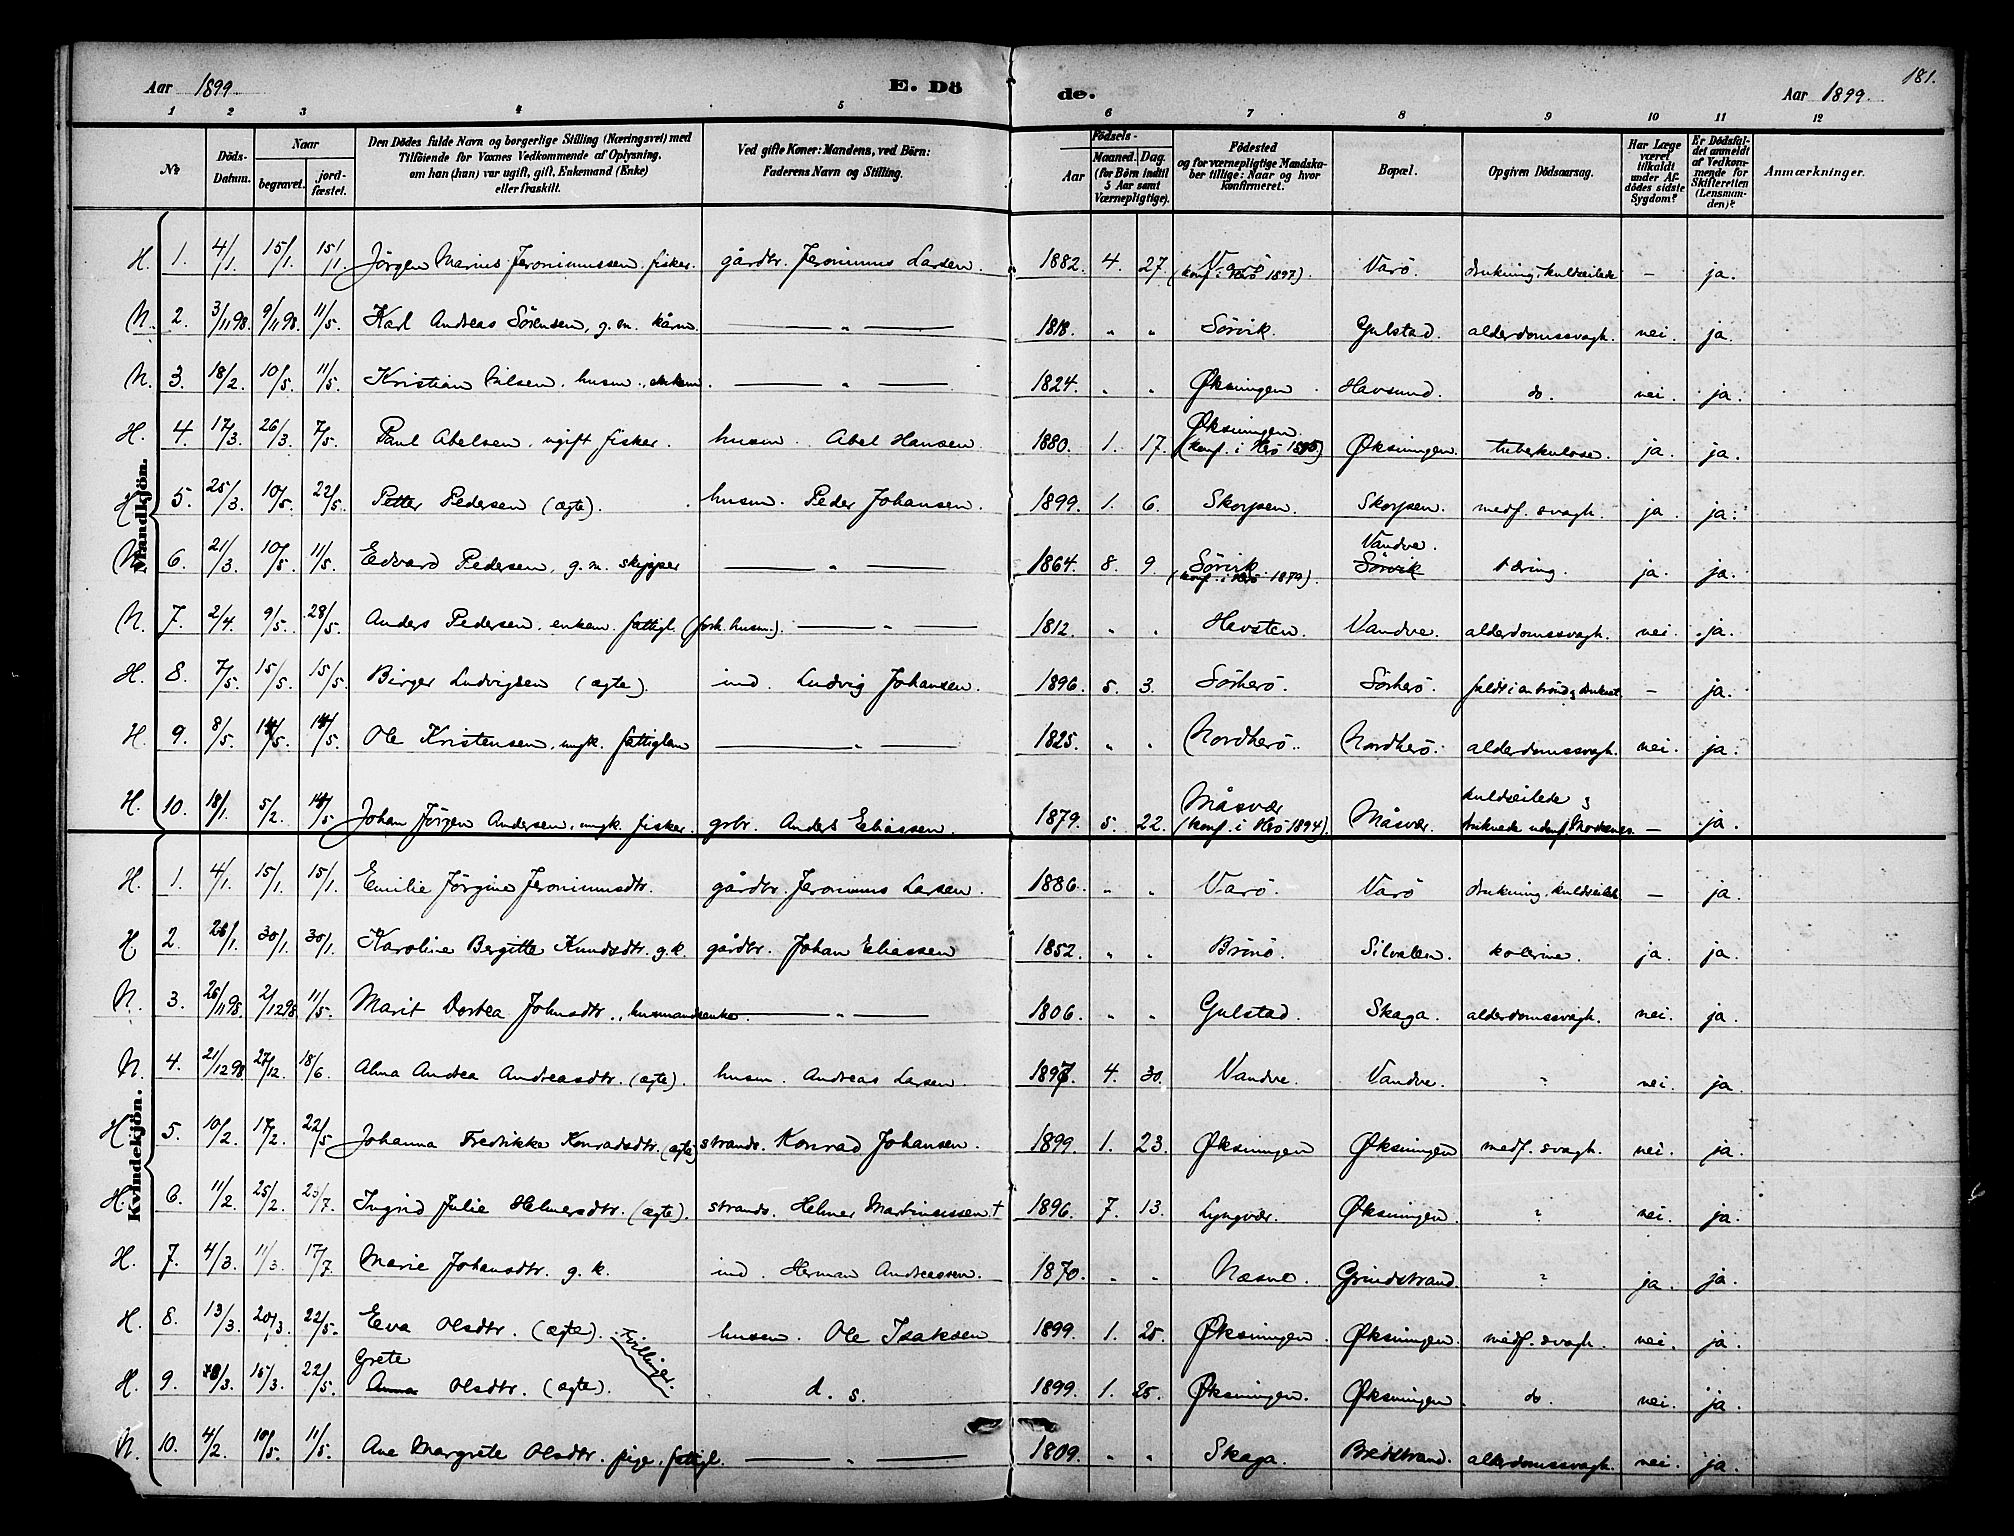 181.
Aar 1899 E. Dö de. Aar 1899.
1 2 3 4 5 6 7 8 9 10 11 12
№ Döds-Datum. Naar begravet. jord-fæstet. Den Dödes fulde Navn og borgerlige Stilling (Næringsvei) med Tilföiende for Voxnes Vedkommende af Oplysning, om han (hun) var ugift, gift, Enkemand (Enke) eller fraskilt. Ved gifte Koner: Mandens, ved Börn: Faderens Navn og Stilling. Födsels- Aar Maaned. Dag. (for Börn indtil 5 Aar samt Værnepligtige). Födested og for værnepligtige Mandskaber tillige: Naar og hvor konfirmeret. Bopæl. Opgiven Dödsaarsag. Har Læge været tilkaldt under Afdödes sidste Sygdom? Er Dödsfaldet anmeldt af Vedkommende for Skifteretten (Lensmanden)? Anmærkninger.
Mandkjön.
H. 1. 4/1. 15/1. 15/1 Jörgen Marius Jeronimussen, fisker. gårdbr. Jeronimus Larsen. 1882. 4. 27. Varö (konf. i Herö 1897). Varö. drukning, kuldseilede — ja.
N. 2. 3/11 98. 9/11 98. 11/5. Karl Andreas Sörensen, g. m. kårm. — " — 1818. " " Sörvik. Gulstad. alderdomssvagh. nei. ja.
N. 3. 18/2. 10/5. 11/5. Kristian Nilsen, husm., enkem. — " — 1824. " " Øksningen. Havsund. do. nei. ja.
H. 4. 17/3. 26/3. 7/5. Paul Abelsen, ugift fisker. husm. Abel Hansen. 1880. 1. 17. Øksningen. (konf. i Herö 1895) Øksningen. tuberkulose. ja. ja.
H 5. 25/3. 10/5. 22/5. Petter Pedersen (ægte). husm. Peder Johansen. 1899. 1. 6. Skorpen. Skorpen. medf. svagh. ja. ja.
N. 6. 21/3. 10/5. 11/5. Edvard Pedersen, g. m. skipper — " — 1864. 8. 9. Sörvik (konf. i Herö 1879). Vandve. Sörvik tæring. ja. ja.
N. 7. 2/4. 9/5. 28/5. Anders Pedersen, enkem. fattigl. (forh. husm.). — " — 1812. " " Havsten. Vandve. alderdomssvagh. nei. ja.
H. 8. 7/5. 15/5. 15/5. Birger Ludvigsen (ægte). ind. Ludvig Johansen. 1896. 5. 3. Sörherö. Sörherö. faldt i en brönd & druknet. — ja.
H. 9. 8/5. 14/5. 14/5. Ole Kristensen, ungk. fattiglem — " — 1825. " " Nordherö. Nordherö. alderdomssvagh. nei. ja.
H. 10. 18/1. 5/2. 14/5. Johan Jörgen Andersen, ungk. fisker. grbr. Anders Eliassen. 1879. 5. 22. Måsvær (konf. i Herö 1894). Måsvær. kuldseilede & druknede — ja.
Kvindekjön.
H. 1. 4/1. 15/1. 15/1. Emilie Jörgine Jeronimusdtr. gårdbr. Jeronimus Larsen. 1886. " " Varö. Varö drukning, kuldseilede — ja.
H 2. 26/1. 30/1. 30/1. Karoline Bergitte Knudsdtr. g. k. gårdbr. Johan Eliassen 1852. " " Brönö. Silvalen. kolerine. ja. ja.
N. 3. 26/11 98. 2/12 98. 11/5. Marit Dortea Johnsdtr., husmandsenke. — " — 1806. " " Gulstad. Skaga. alderdomssvagh. nei. ja.
N. 4. 21/12 98 27/12. 18/6. Alma Andrea Andreasdtr. (ægte). husm. Andreas Larsen 1897. 4. 30. Vandve. Vandve. ? nei. ja.
H 5. 10/2. 17/2. 22/5. Johanna Fredrikke Konradsdtr. (ægte) strands. Konrad Johansen. 1899. 1. 23. Øksningen Øksningen medf. svagh. nei. ja.
H. 6. 11/2. 25/2. 23/7. Ingrid Julie Helmersdtr. (ægte). strands. Helmer Martinussen † 1896. 7. 13. Lyngvær. Øksningen. ? nei. ja.
H. 7. 4/3. 11/3. 17/7. Marie Johansdtr. g. k. ind. Herman Andreassen. 1870. " " Næsne. Grindstrand. ? ja. ja.
H. 8. 13/3. 20/3. 22/5. Eva Olsdtr. (ægte). Tvillinger. husm. Ole Isaksen 1899. 1. 25. Øksningen. Øksningen. medf. svagh. nei. ja.
H. 9. 15/3. 22/5. Grete Anna Olsdtr. (ægte). d. s. 1899. 1. 25. Øksningen. Øksningen. do nei. ja.
N. 10. 4/2. 10/5. 11/5. Ane Margrete Olsdtr. pige, fattigl. — " — 1809. " " Skaga. Bredstrand. alderdomssvagh. nei. ja.